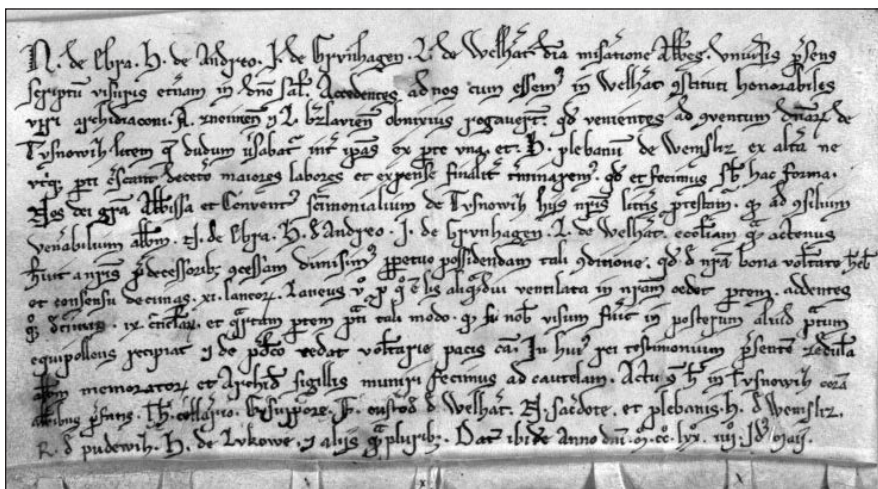 N. de Ebra. H. de Andreo. I. de Grvnhagen. L. de Welhat. dīa misatione Abbes. vniuersis p̄sens
scriptū visuris etnam in dno sal. Accedentes ad nos cum essemꝰ in Welhat ꝯstituti honorabiles
viri archidiaconi. A. znoimen ⁊ L. bzlavien obnixius rogauerūt. qd venientes ad ꝯventum dnaꝝ de
Tvsnowih litem q̄ dudum v̄sabat᷑ int᷑ ipas ex pte vna. et. H. plebanū de Wemsliz ex alt᷑a ne
vt᷑q̨ pti c̄scant decet᷑o maiores labores et expense finalit᷑ t᷑minaremꝰ. qd et fecimus sb hac forma.
Nos dei gr̄a Abbissa et Conventꝰ sc̄imonialium de Tvsnowih hijs nr̄is litt᷑is ptestam᷑. qꝫ ad ꝯsilium
ven̄abilium abbm. N. de Ebra. H. d Andreo. I. de Grvnhagen. L. de Welhat. eccliam quā actenus
h̄uit a nr̄is p̄decessoribꝫ ꝯcessam dimisimꝰ ppetuo possidendam tali ꝯditione. qd d nr̄a bona volūtate
et consensu decimas. xi. laneoꝝ. Laneus vͦ. p qͦ ē lis aliqͣdiu ventilata in nr̄am cedet ptem. addentes
ix. et qͣrtam ptem pti tali modo. qꝫ si nob visum fu᷑it in posterum aliud ptum
equipollens recipiat ⁊ de pdc̄o cedat volūtarie pacis cā. In huiꝰ rei testimonium p̄sentē zedula
abbm memoratoꝝ et Archid sigillis muniri fecimus ad cautelam. Actū ē h in Tvsnowih corā
abbibus p̄fatis. cell᷑ario. Svppͦore. custod d Welhat. N. sac᷑dote. et plebanis. h. d Wemsliz.
R. d pudewih. H. de Lvkowe. ⁊ alijs qͣ pluribꝫ. Dat᷑ ibidē Anno dni. ꝏ. cc. lxx. iiij. Id᷑ ꝏaij.